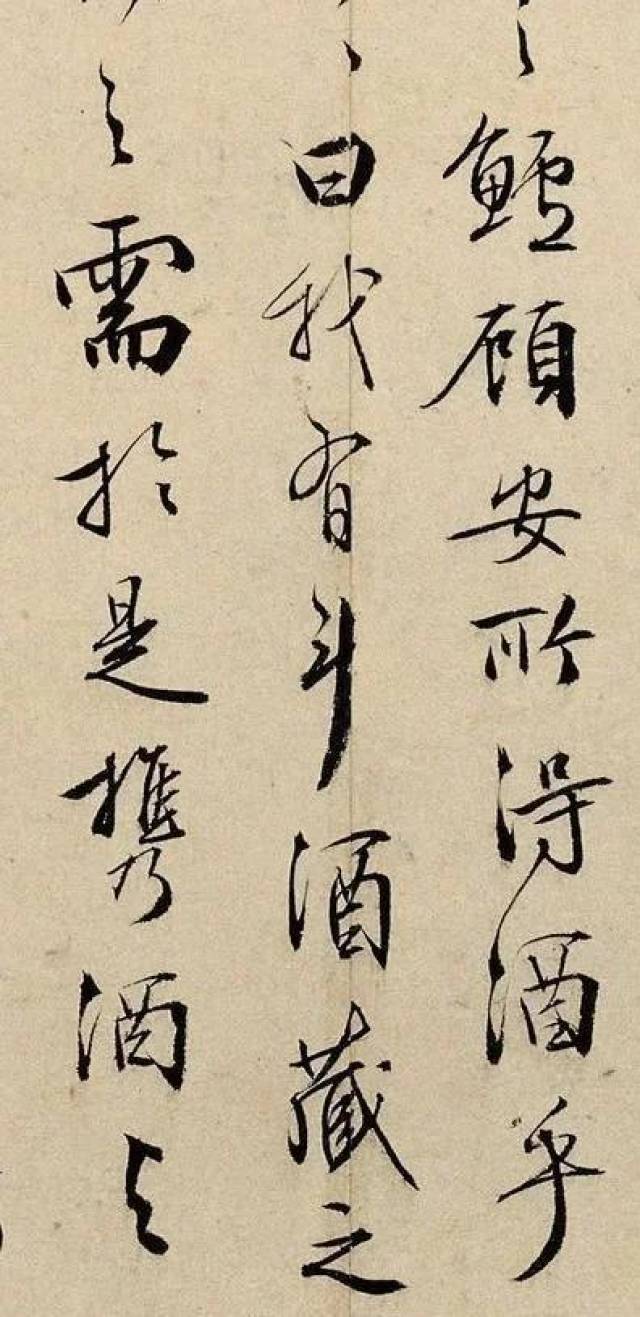 鱸顧安所得酒乎
曰我有斗酒藏之
之需於是攜酒与